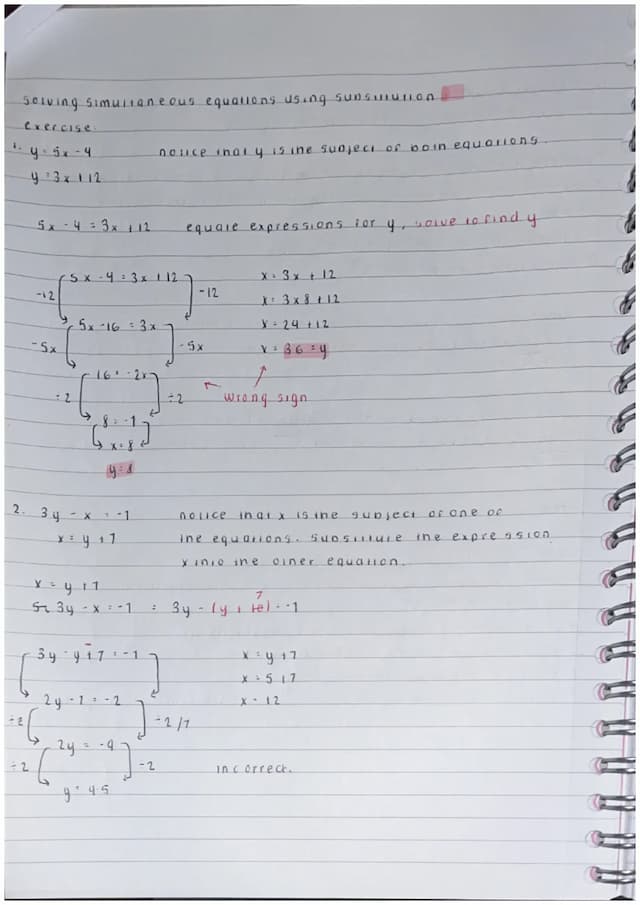 solving simultaneous equations using substitution
exercise.
1. y = 5x - 4 notice that y is the subject of both equations.
y = 3x + 12
5x - 4 = 3x + 12 equate expressions for y, solve to find y
5x - 4 = 3x + 12 x = 3x + 12
-12 -12 x = 3x8 + 12
5x - 16 = 3x x = 24 + 12
-5x -5x x = 36 = y
16 = -2x
÷2 ÷2 wrong sign
8 = -1
x = 8
y = 8
2. 3y - x = -1 notice that x is the subject of one of
x = y + 7 the equations. substitute the expression
x into the other equation.
x = y + 7
3y - x = -1 = 3y - (y + 7) = -1
3y - y + 7 = -1 x = y + 7
x = 5 + 7
2y - 7 = -2 x = 12
÷2
2y = -9
÷2 -2 incorrect.
y = 4.5